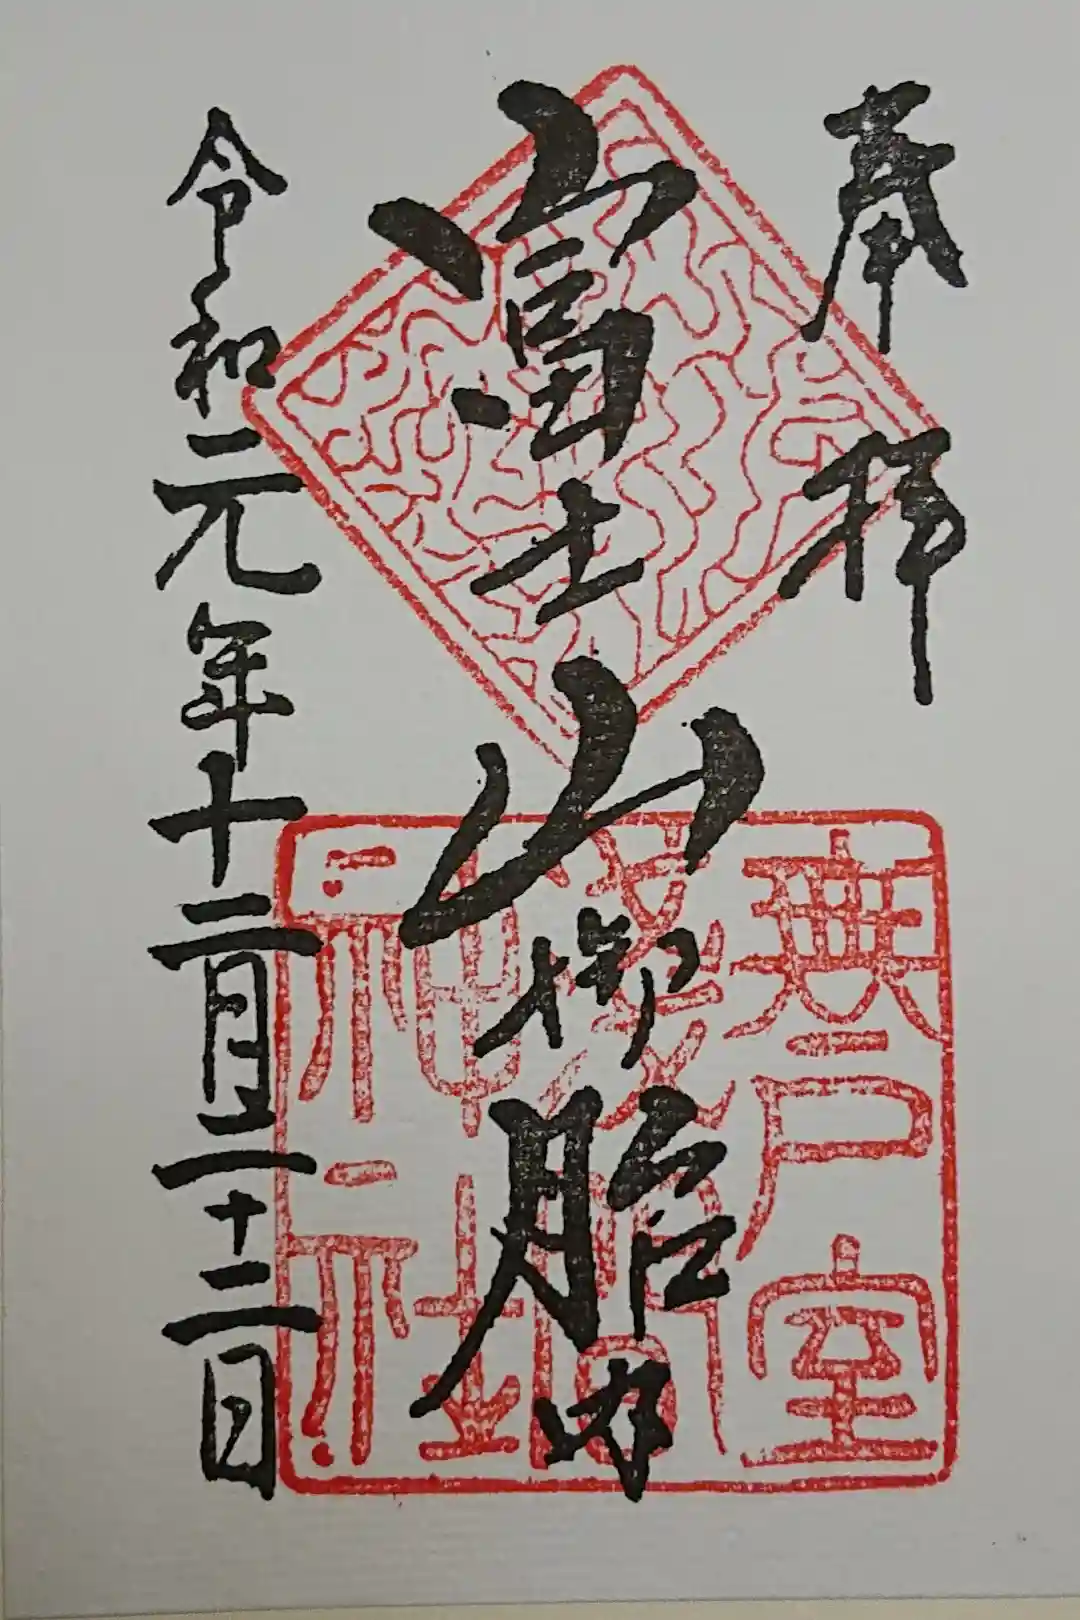 奉拝
富士山御胎内
令和元年十二月二十二日
無戸室
淺間
神社